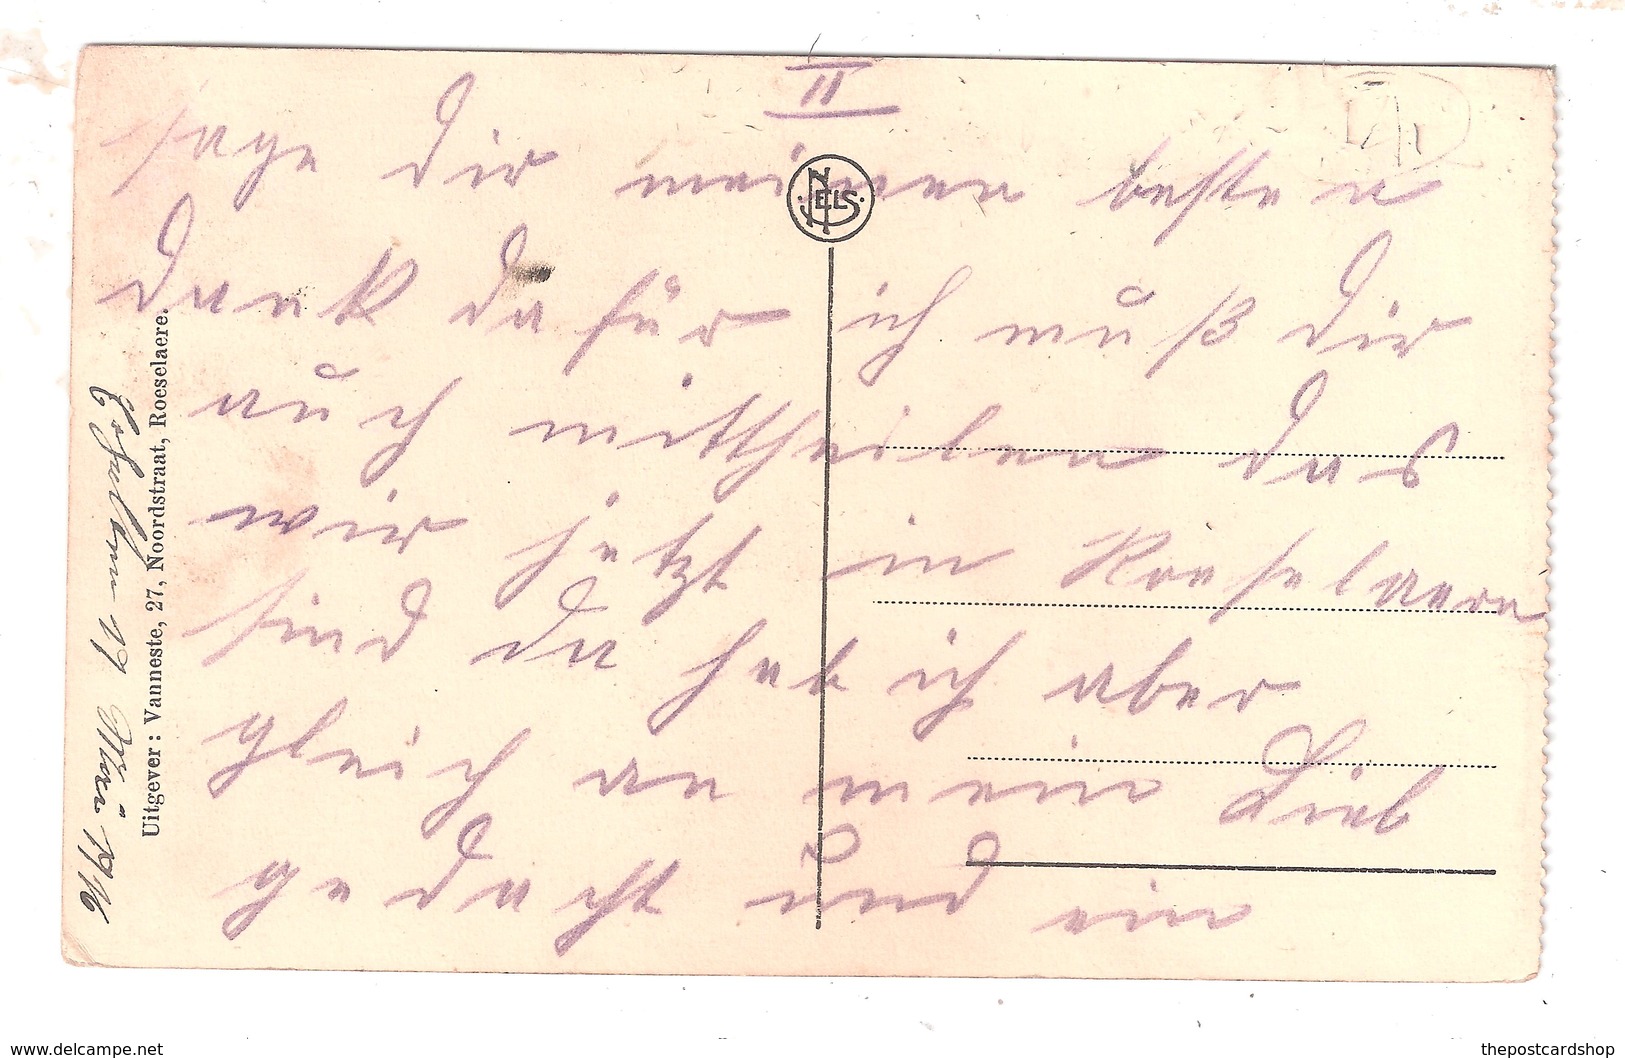 II
sage dir meinen besten
NELS
dank dafür ich muß dir
auch mittheilen das
wir jetzt in Roeselaere
sind da hab ich aber
gleich an mein Lieb
gedacht und ein
Uitgever: Vanneste, 27, Noordstraat, Roeselaere.
Erhalten 19 Mai 1916
www.delcampe.net
thepostcardshop